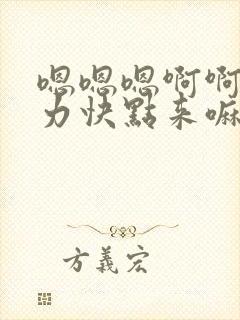 嗯嗯嗯啊啊
力快點来嘛
方義宏